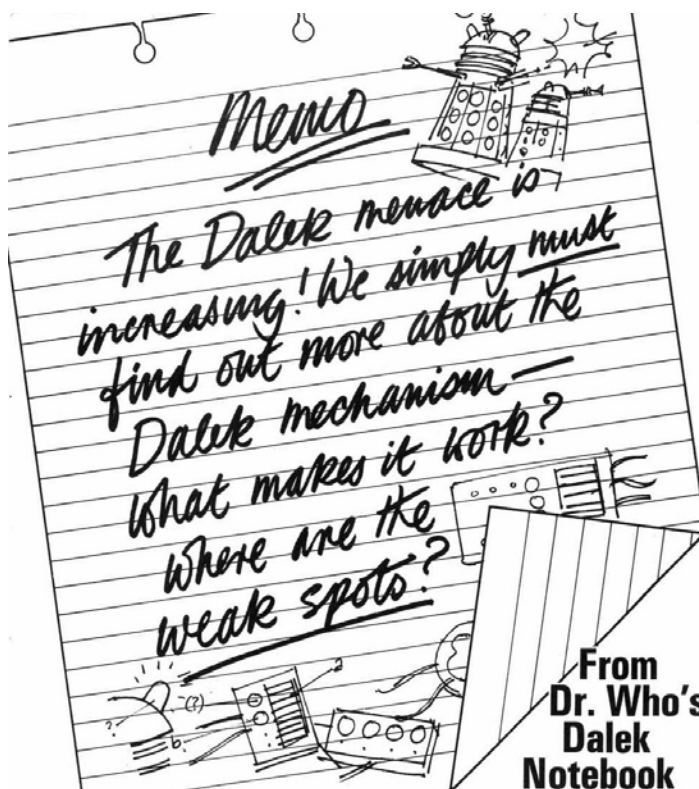 Memo
The Dalek menace is
increasing! We simply must
find out more about the
Dalek mechanism —
what makes it work?
where are the
weak spots?
(?)
2
?
6
From
Dr. Who's
Dalek
Notebook